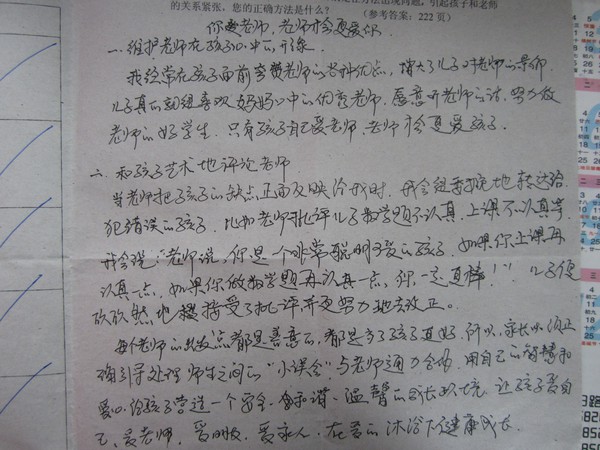 的关系紧张，您的正确方法是什么？
（参考答案：222 页）
你爱老师，老师才会更爱你
一．维护老师在孩子心中的形象
我经常在孩子面前赞老师的各种优点，增大了儿子对老师的景仰
儿子真的就很喜欢妈妈心中的优秀老师，愿意听老师的话，努力做
老师的好学生．只有孩子自己爱老师，老师才会更爱孩子．
二．和孩子艺术地评论老师
当老师把孩子的缺点正面反映给我时，我会很委婉地转达给
犯错误的孩子．比如老师批评儿子数学题不认真，上课不认真等
我会说：“老师说，你是一个非常聪明可爱的孩子．如果你上课再
认真一点，如果你做数学题再认真一点，你一定更棒！”儿子便
欣欣然地接受了批评并更努力地去改正。
每个老师的出发点都是善意的，都是为了孩子更好．所以，家长必须正
确引导处理师生之间的“小误会”与老师通力合作，用自己的智慧和
爱心，给孩子营造一个安全、和谐、温馨的成长环境，让孩子爱自
己，爱老师，爱朋友，爱家人．在爱的沐浴下健康成长．